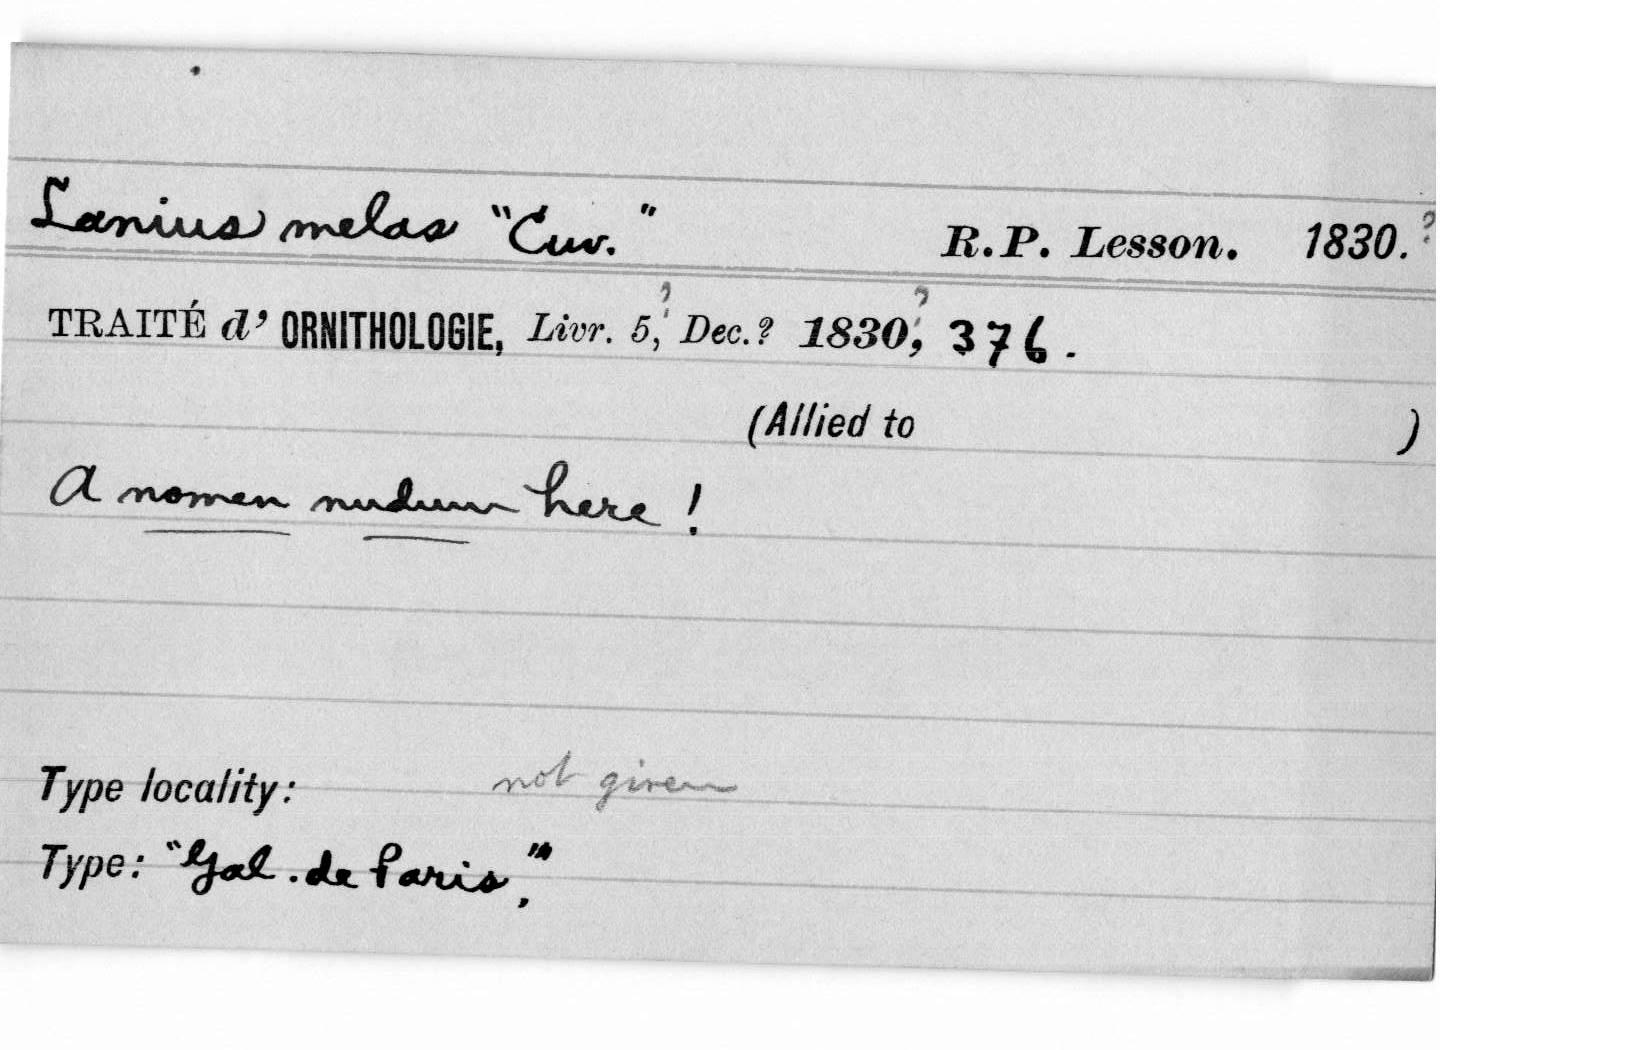 Lanius melas "Cuv." R.P. Lesson. 1830.?
TRAITÉ d' ORNITHOLOGIE, Livr. 5,? Dec.? 1830,? 376.
(Allied to )
A nomen nudum here!
Type locality: not given
Type: "Gal. de Paris,"